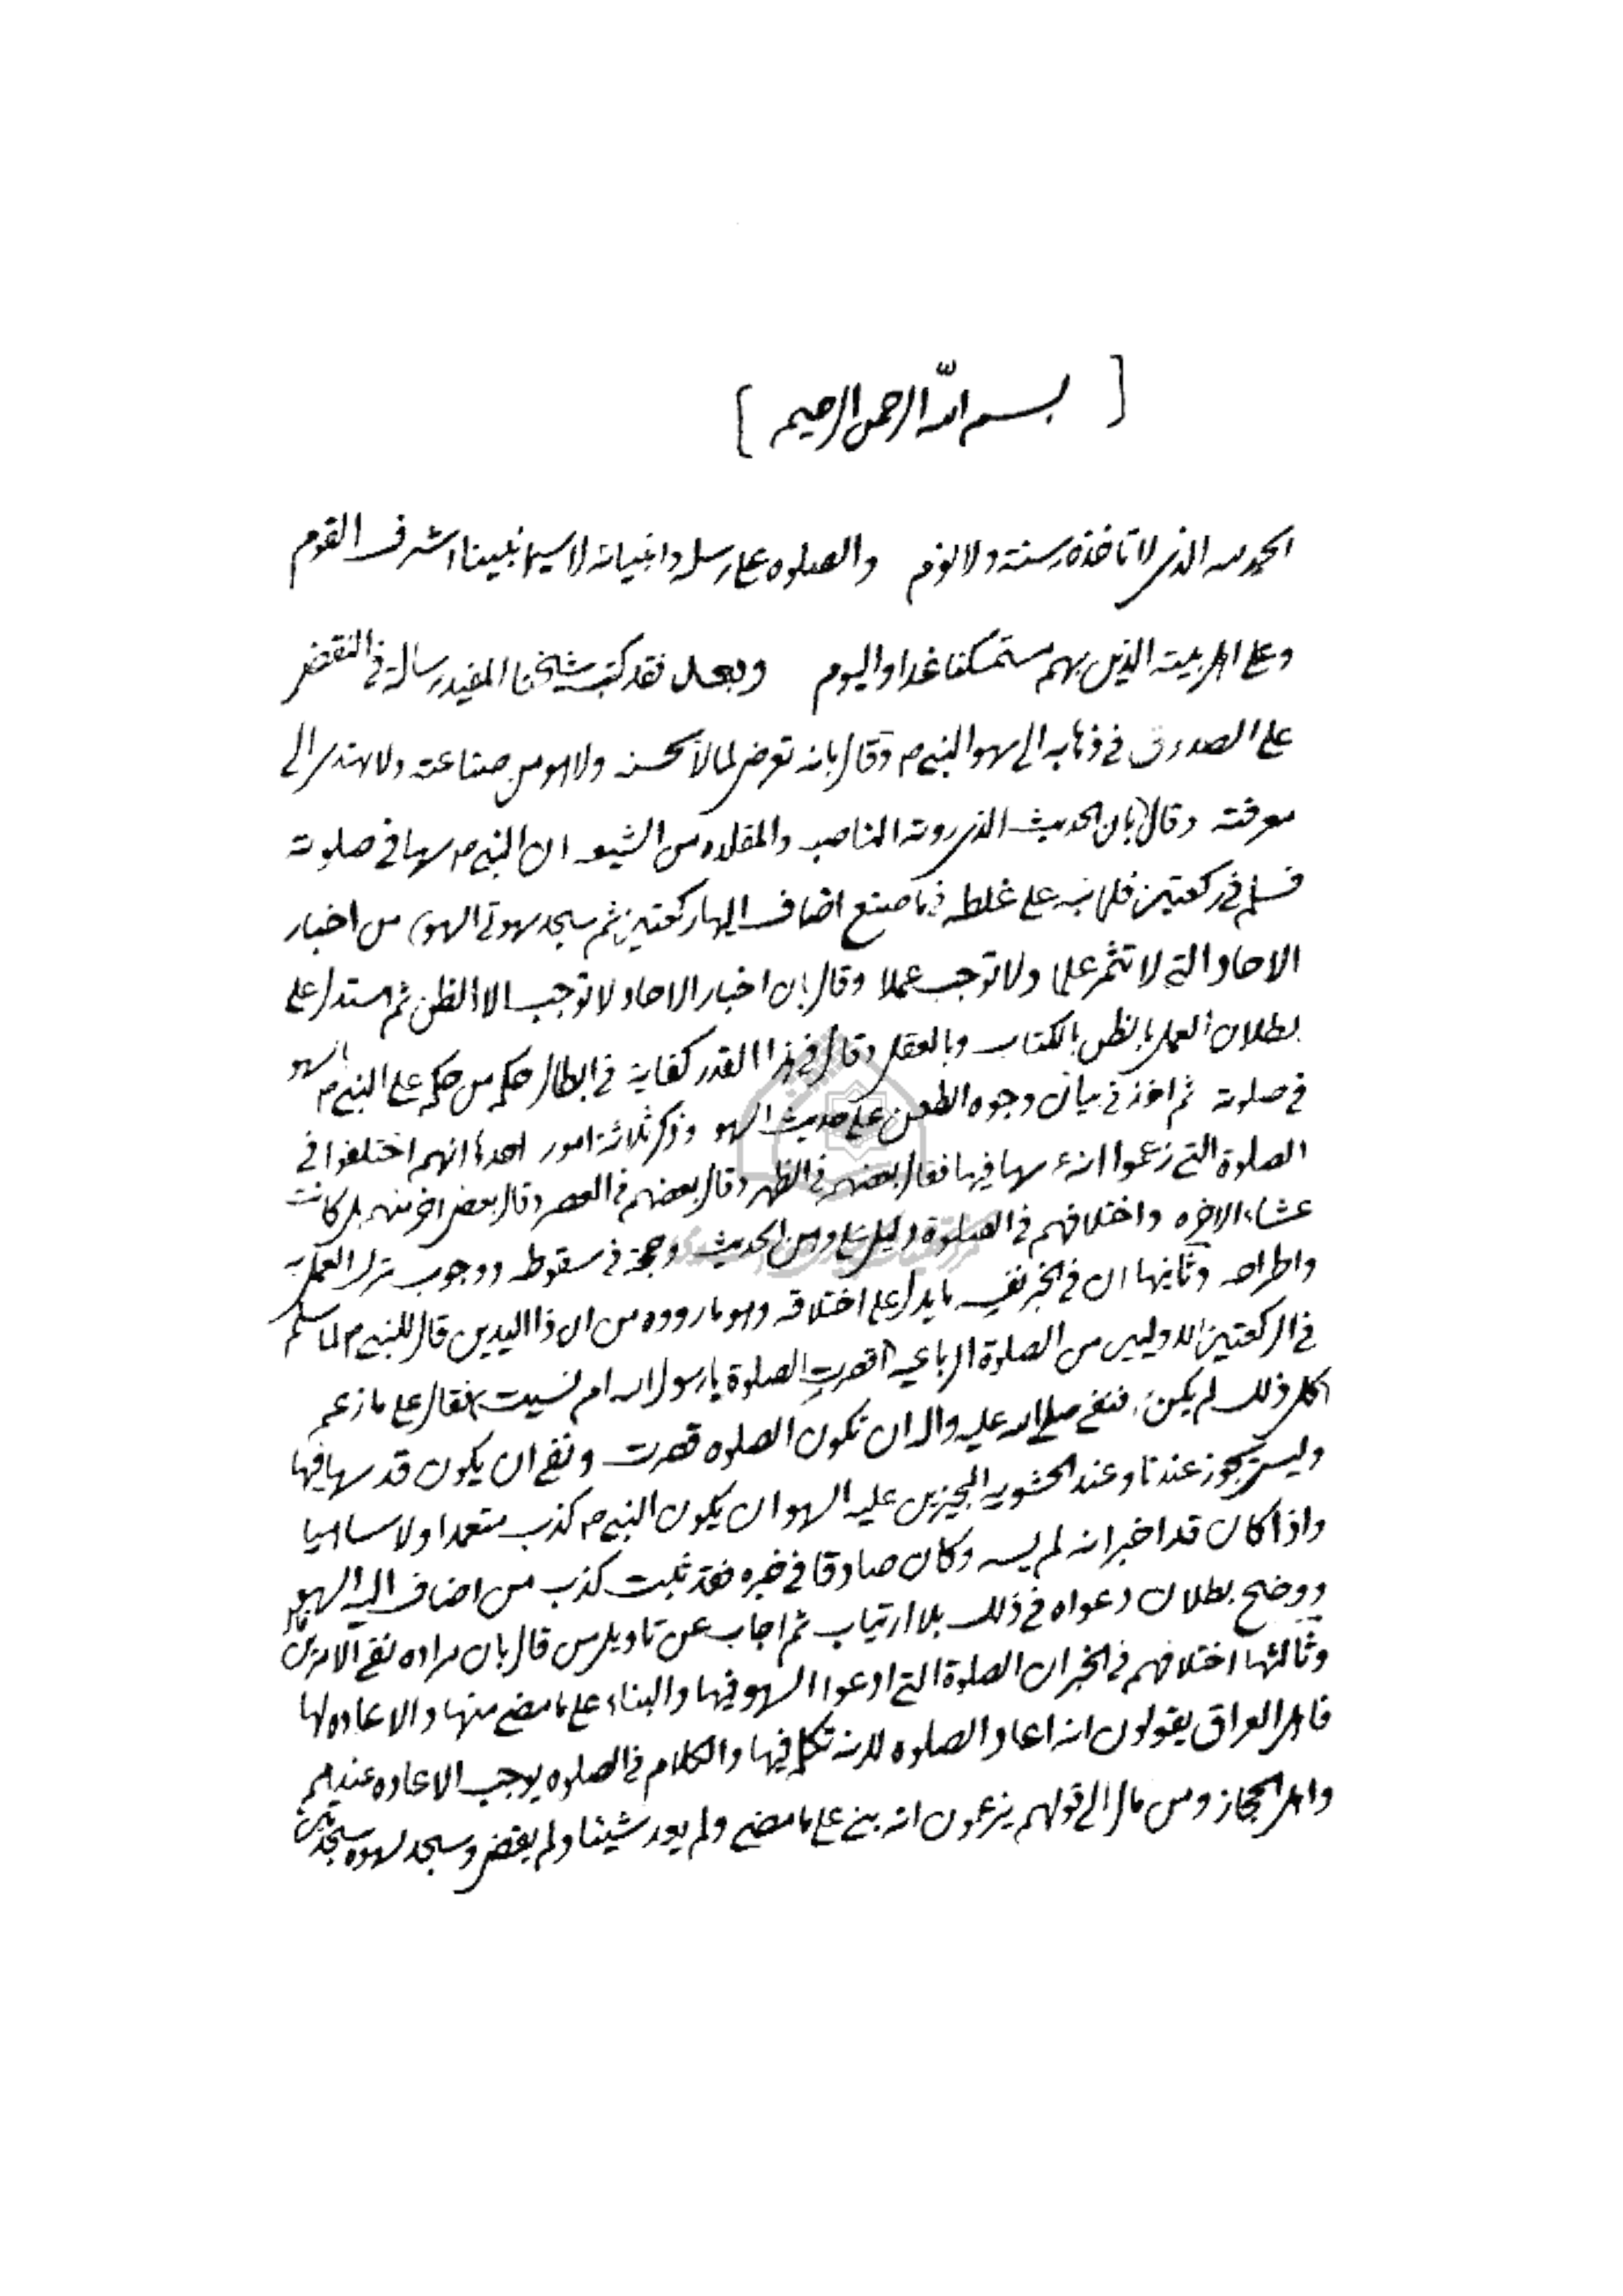 [ بسم اللّه الرحمن الرحيم ]
الحمد لله الذى لا تاخذه سنة ولا نوم والصلوه على رسله وانبيائه لا سيما نبينا اشرف القوم
وعلى اهل بيته الذين بهم مستمسكنا غدا واليوم وبعد فقد كتب شيخنا المفيد رسالة فى النقض
على الصدوق فى ذهابه الى سهو النبى م وقال بانه تعرض لما لا يحسنه ولا هو من صناعته ولا يهتدى الى
معرفته وقال بان الحديث الذى روته الناصبه والمقلده من الشيعه ان النبى م سها فى صلوته
فسلم فى ركعتين فلما نبه على غلطه فيما صنع اضاف اليها ركعتين ثم سجد سهوتى السهو من اخبار
الاحاد التى لا تثمر علما ولا توجب عملا وقال بان اخبار الاحاد لا توجب الا الظن ثم استدل على
بطلان العمل بالظن بالكتاب وبالعقل وقال فى هذا القدر كفاية فى ابطال حكم من حكم على النبى م بالسهو
فى صلوته ثم اخذ فى بيان وجوه الطعن على حديث السهو وذكر ثلاثة امور احدها انهم اختلفوا فى
الصلوة التى زعموا انه ع سها فيها فقال بعضهم فى الظهر وقال بعضهم فى العصر وقال بعض اخر منهم بل كانت
عشاء الاخره واختلافهم فى الصلوة دليل على وهن الحديث وحجة فى سقوطه ووجوب ترك العمل به
واطراحه وثانيها ان فى الخبر نفسه ما يدل على اختلاقه وهو ما رووه من ان ذا اليدين قال للنبى م لما سلم
فى الركعتين الاوليين من الصلوة الرباعيه اقصرت الصلوة يا رسول الله ام نسيت فقال على ما زعم
كل ذلك لم يكن، فنفى صلى الله عليه واله ان تكون الصلوه قصرت ونفى ان يكون قد سها فيها
وليس يجوز عندنا وعند الحشويه المجيزين عليه السهو ان يكون النبى م كذب متعمدا ولا ساهيا
واذا كان قد اخبر انه لم يسه وكان صادقا فى خبره فقد ثبت كذب من اضاف اليه السهو
ووضح بطلان دعواه فى ذلك بلا ارتياب ثم اجاب عن تاويل من قال بان مراده نفى الامرين
وثالثها اختلافهم فى الخبر ان الصلوة التى ادعوا السهو فيها والبناء على ما مضى منها والاعاده لها
فاهل العراق يقولون انه اعاد الصلوه لانه تكلم فيها والكلام فى الصلوه يوجب الاعاده عندهم
واهل الحجاز ومن مال الى قولهم يزعمون انه بنى على ما مضى ولم يعد شيئا ولم يقض وسجد لسهوه سجدتين